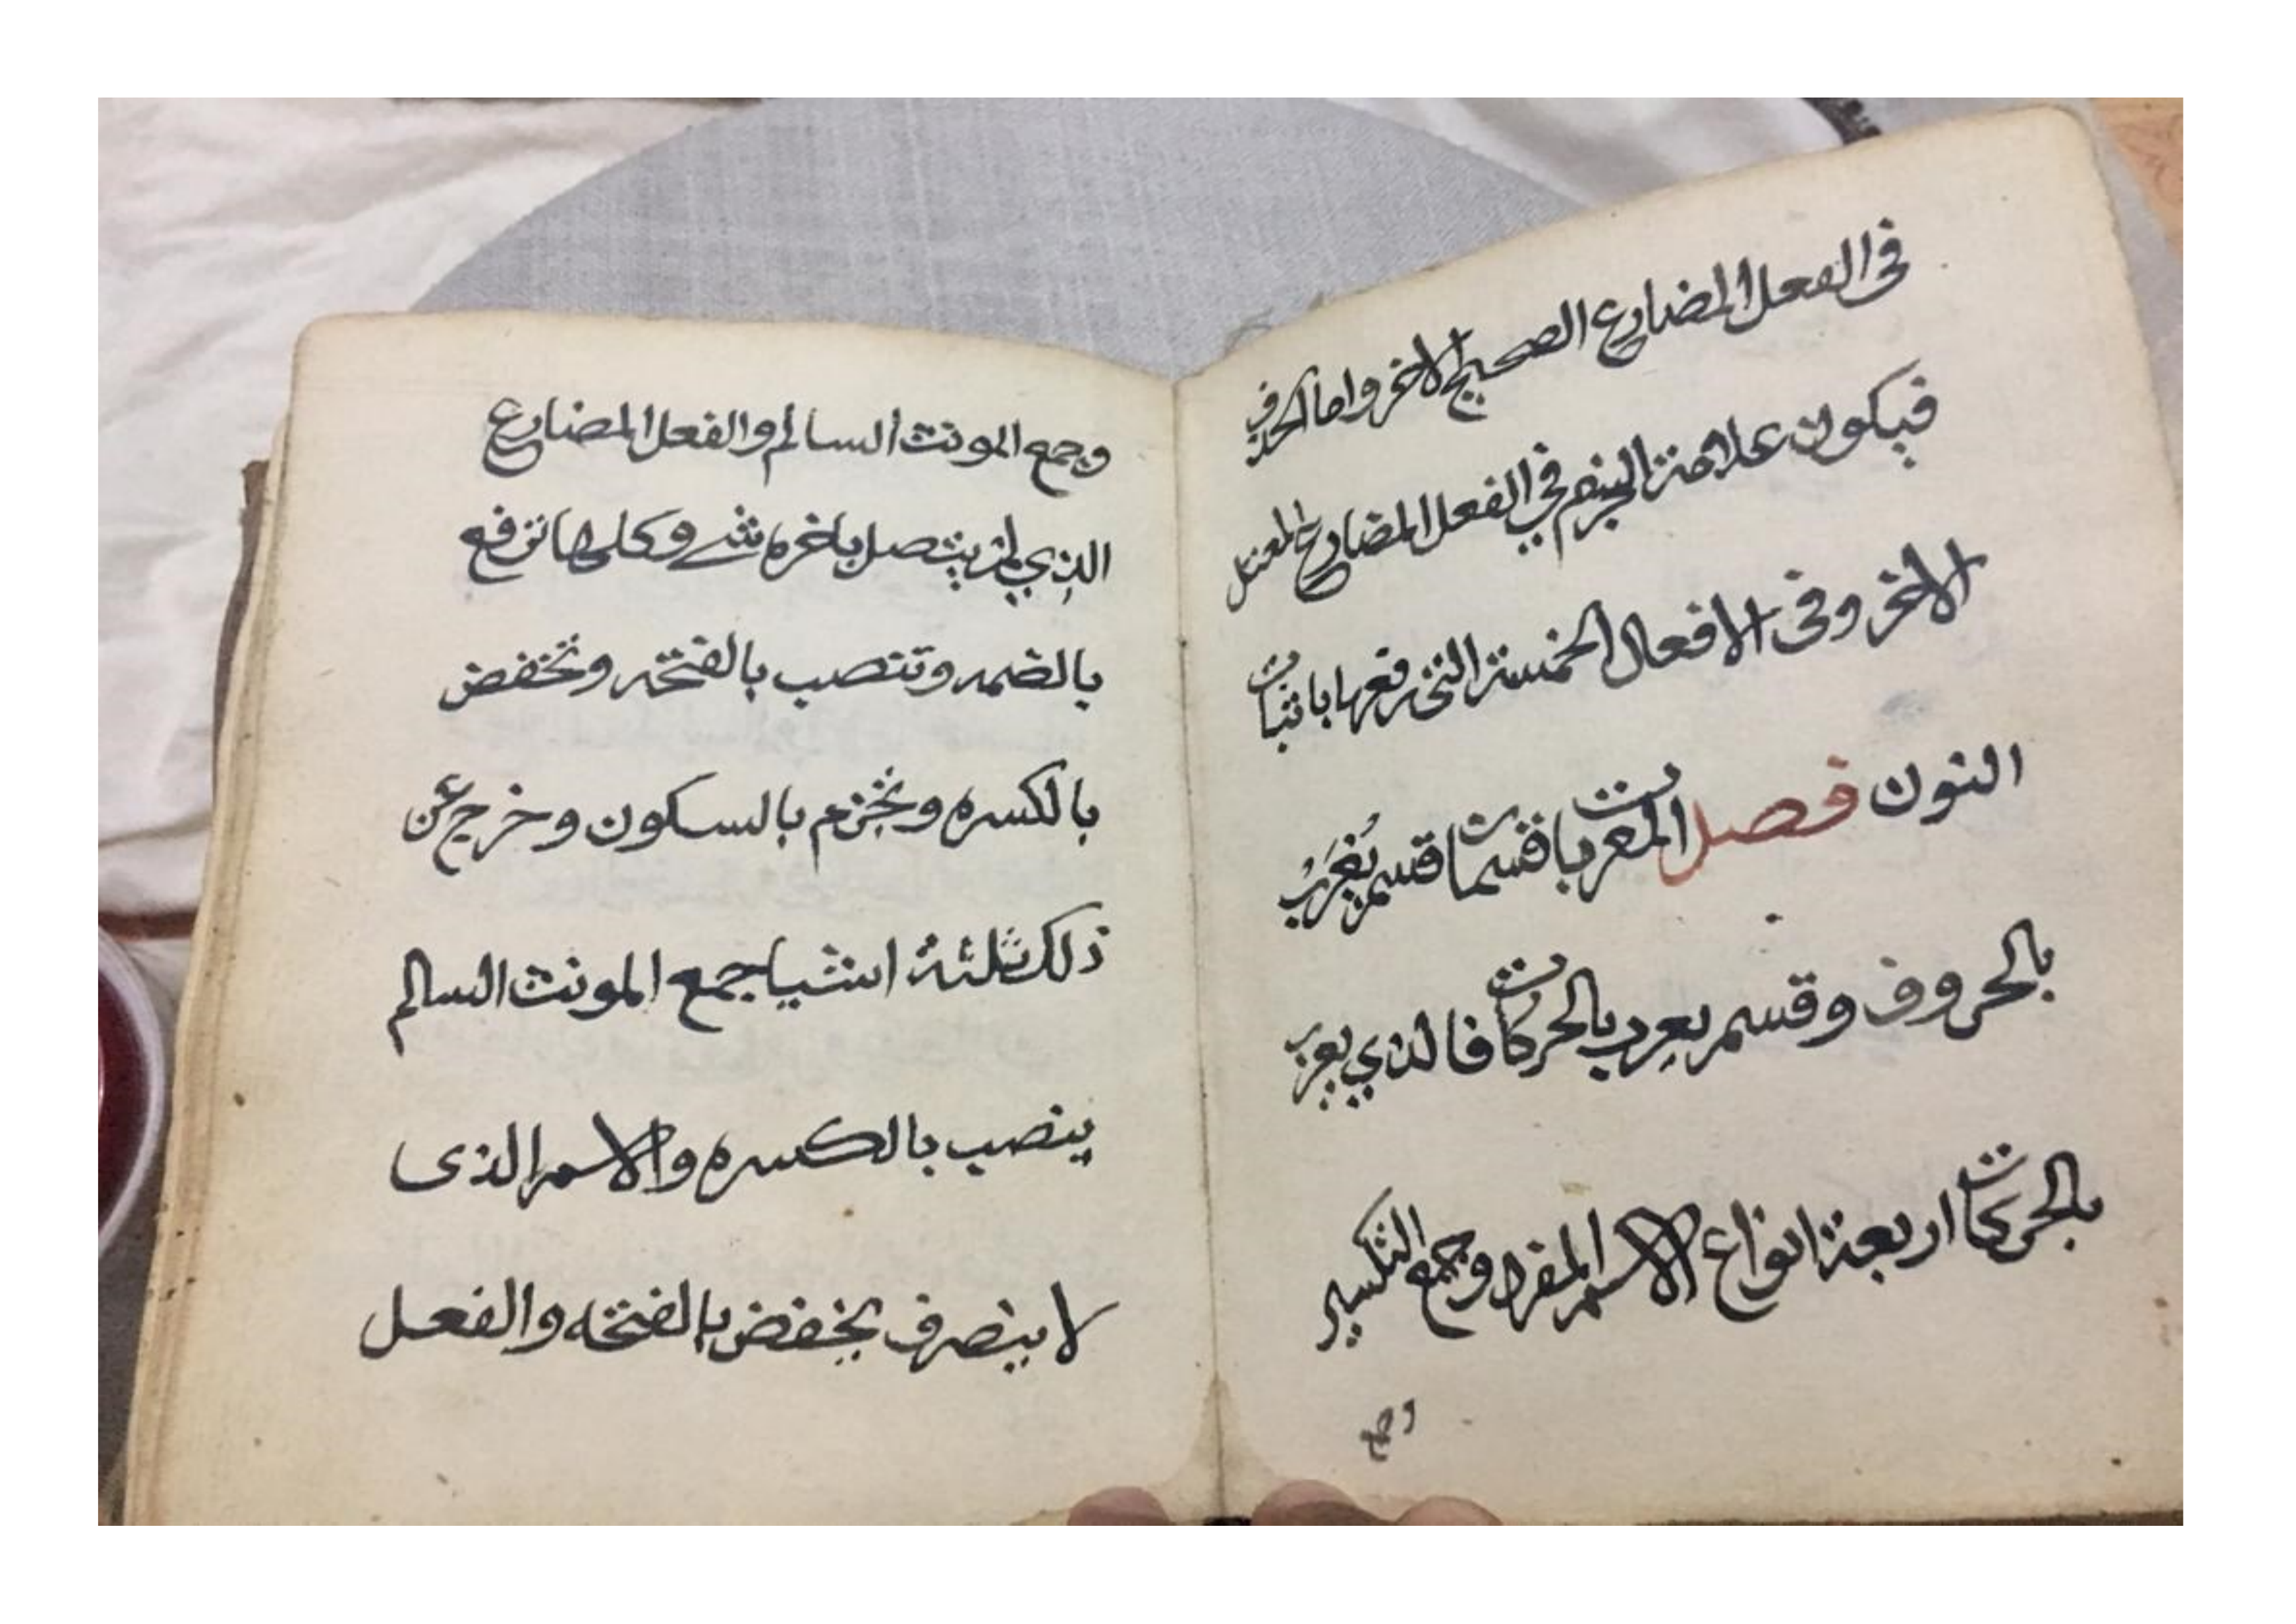 فى الفعل المضارع الصحيح الاخر واما الحذف
فيكون علامة الجزم في الفعل المضارع المعتل
الاخر وفى الافعال الخمسة التى رفعها باثبات
النون فصل المعربات قسمان قسم يُعْرَبُ
بالحروف وقسم يعرب بالحركات فالذي يعرب
بالحركات اربعة انواع الاسم المفرد وجمع التكسير
وجمع
وجمع المونث السالم والفعل المضارع
الذي لم يتصل باخره شے وكلها ترفع
بالضمه وتنصب بالفتحه وتخفض
بالكسره وتجزم بالسكون وخرج عن
ذلك ثلثة اشيا جمع المونث السالم
ينصب بالكسره والاسم الذى
لا ينصرف يخفض بالفتحه والفعل